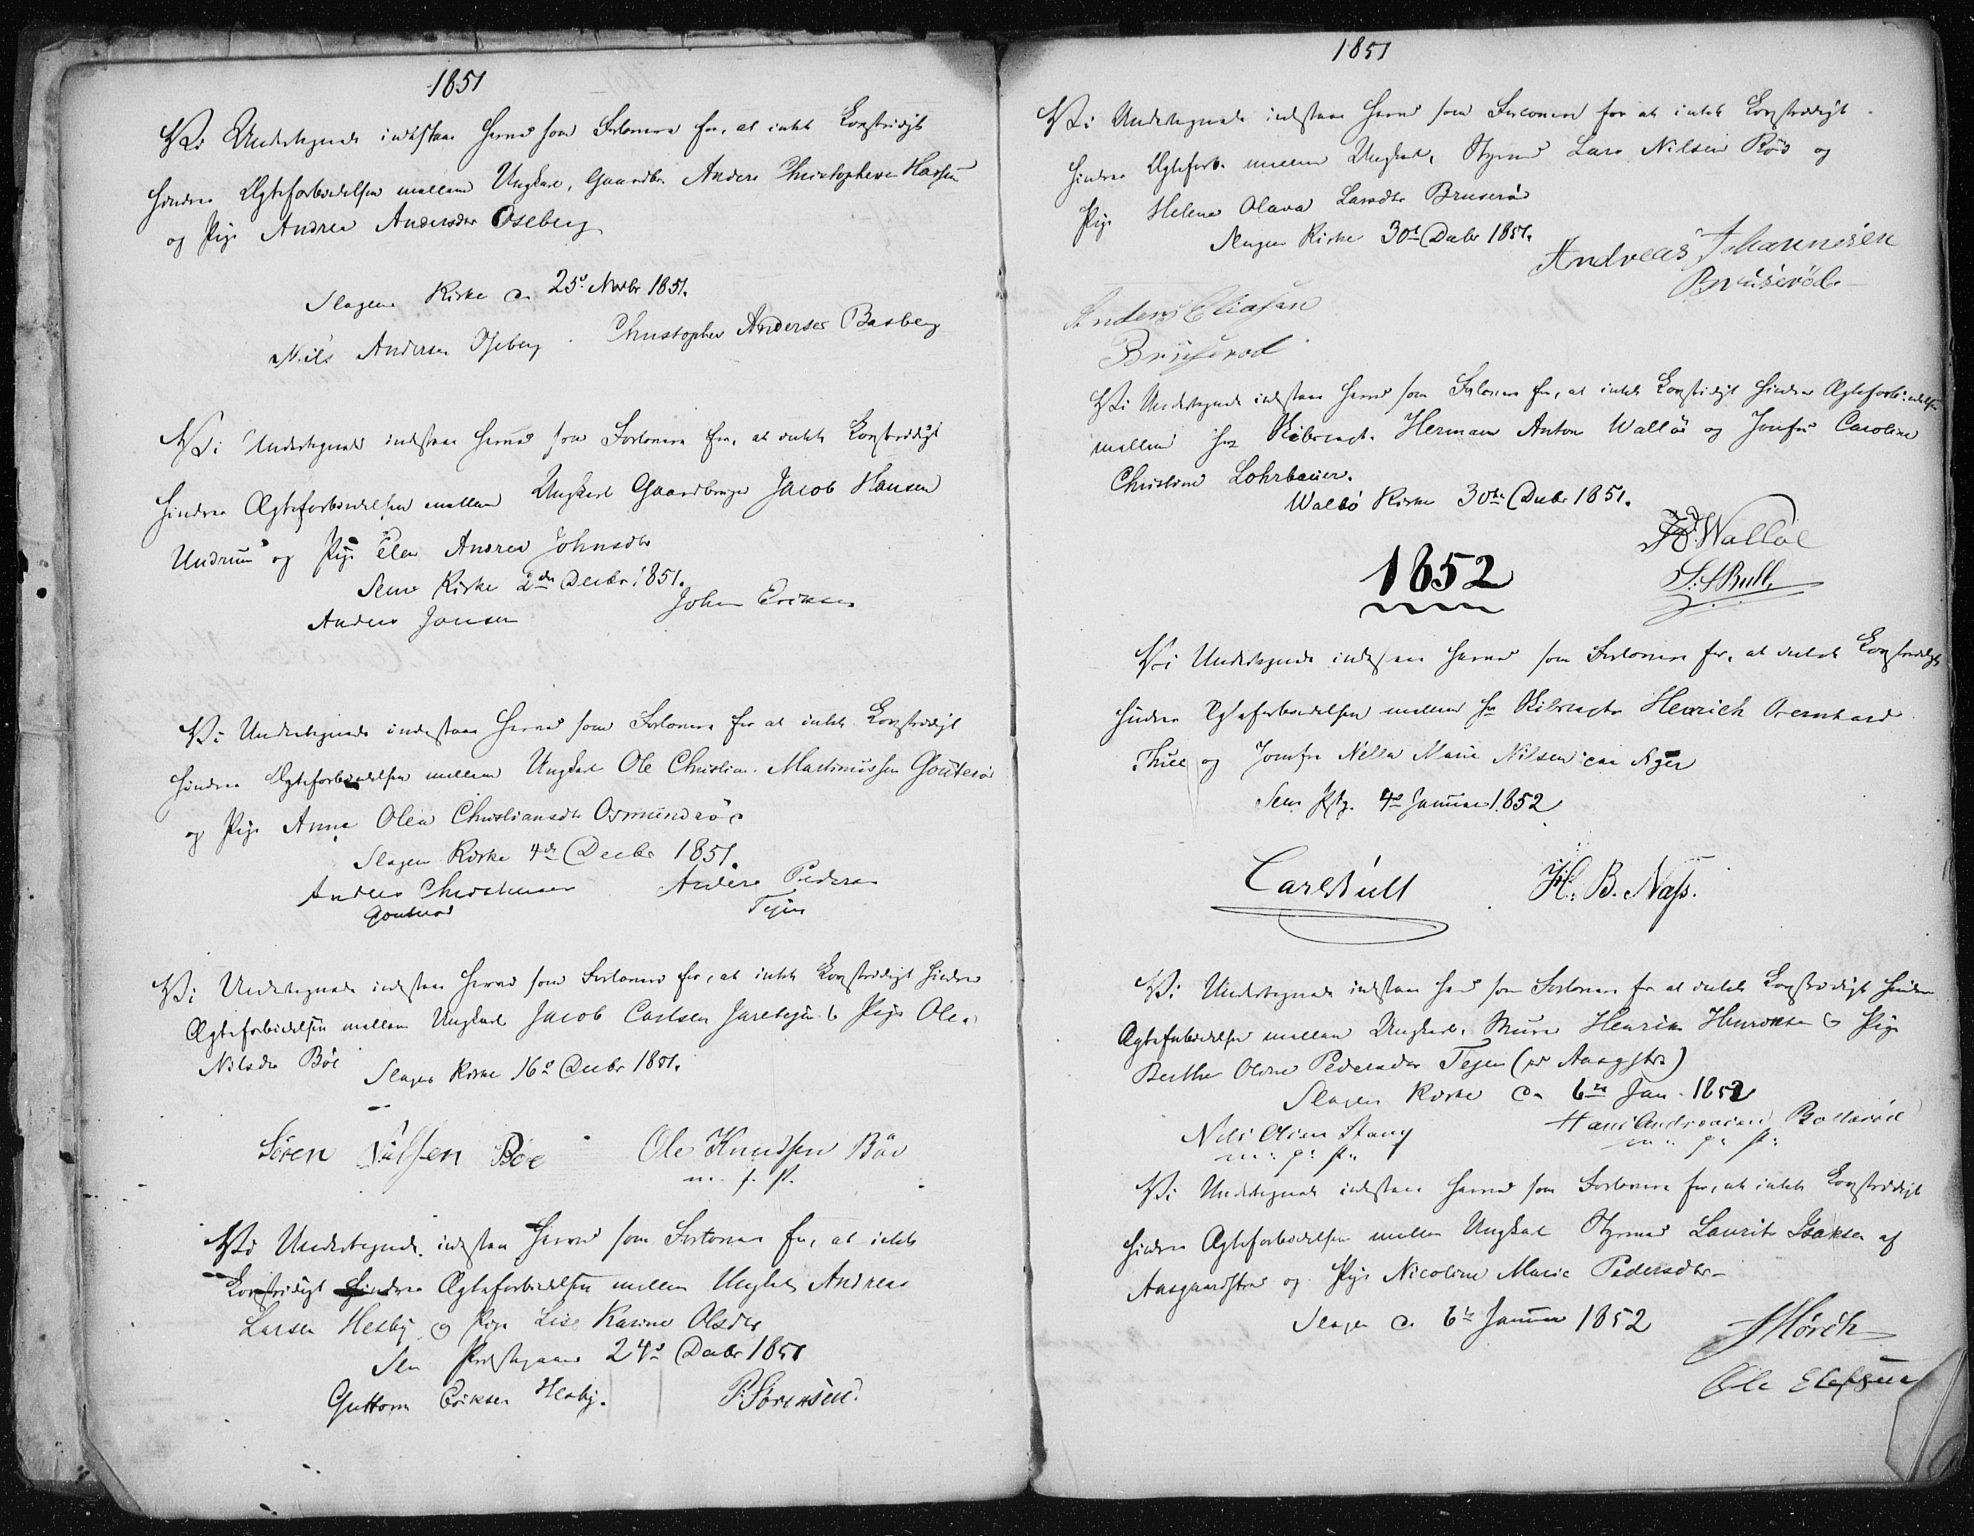 1851
Vi Undertegnede indestaae herved som Forlovere for, at intet Lovstridigt
hindrer Ægteforbindelsen mellem Ungkarl, Gaardbr. Anders Christophersen
og Pige Andrea Andersdtr Oseberg
Slagens Kirke d. 25de Novbr 1851.
Nils Andersen Oseberg Christopher Andersen Basberg
Vi Undertegnede indestaae herved som Forlovere for, at intet Lovstridigt
hindrer Ægteforbindelsen mellem Ungkarl Gaardbruger Jacob Hansen
Undrum og Pige Elen Andrea Johnsdtr
Sems Kirke 2den Decbr 1851.
Anders Jonsen John Eriksen
Vi Undertegnede indestaae herved som Forlovere for at intet Lovstridigt
hindrer Ægteforbindelsen mellem Ungkarl Ole Christian Martinussen
og Pige Anne Olea Christiansdtr Osmundrød
Slagens Kirke 4de Decbr 1851.
Anders Christensen Anders Pedersen
Tejen
Vi Undertegnede indestaae herved som Forlovere for, at intet Lovstridigt hindrer
Ægteforbindelsen mellem Ungkarl Jacob Carlsen Jaretejen & Pige Olea
Nilsdtr Böe
Slagens Kirke 16de Decbr 1851.
Sören Nilssen Böe Ole Knudssen Böe
Vi Undertegnede indestaae herved som Forlovere for, at intet
Lovstridigt hindrer Ægteforbindelsen mellem Ungkarl Andreas
Larsen Hesby og Pige Lise Karine Olsdtr
Sem Præstegaard 24de Decbr 1851
Guttorm Eriksen Hesby. P. Sörensen.
1851
Vi Undertegnede indestaae herved som Forlovere for at intet Lovstridigt
hindrer Ægteforb. mellem Ungkarl, Styrmd Lars Nilsen Røs og
Pige Helene Olava Larsdtr Bruserød
Slagens Kirke 30te Decbr 1851.
Andreas Johannesen
Bruserød
Anders Eliasen
Bruserød
Vi Undertegnede indestaae herved som Forlovere for, at intet Lovstridigt hindrer Ægteforbindelsen
mellem Hr Skibscapt. Herman Anton Walløe og Jomfru Caroline
Christine Lohrbauer.
Wallø Kirke 30te Decbr 1851.
Walløe
Bull
1852
Vi Undertegnede indestaae herved som Forlovere for, at intet Lovstridigt
hindrer Ægteforbindelsen mellem Hr Skibscapt Henrich Bernhard
og Jomfru Marie Nilsen
Sems Pstg. 4de Januar 1852
Carl Bull H. B. Næss.
Vi Undertegnede indestaae herved som Forlovere for at intet Lovstridigt hindrer
Ægteforbindelsen mellem Ungkarl, Henrik & Pige
Berthe Oline Pedersdtr Tejen
Slagens Kirke d. 6te Jan. 1852
Nils Olsen Stang Hans Andreasen
m: p: p:
Vi Undertegnede indestaae herved som Forlovere for, at intet Lovstridigt
hindrer Ægteforbindelsen mellem Ungkarl Styrmand Laurits Isaksen af
Aasgaardstrand og Pige Nicoline Marie Pedersdtr
Slagen d. 6te Januar 1852
Mörch
Ole Elefsen